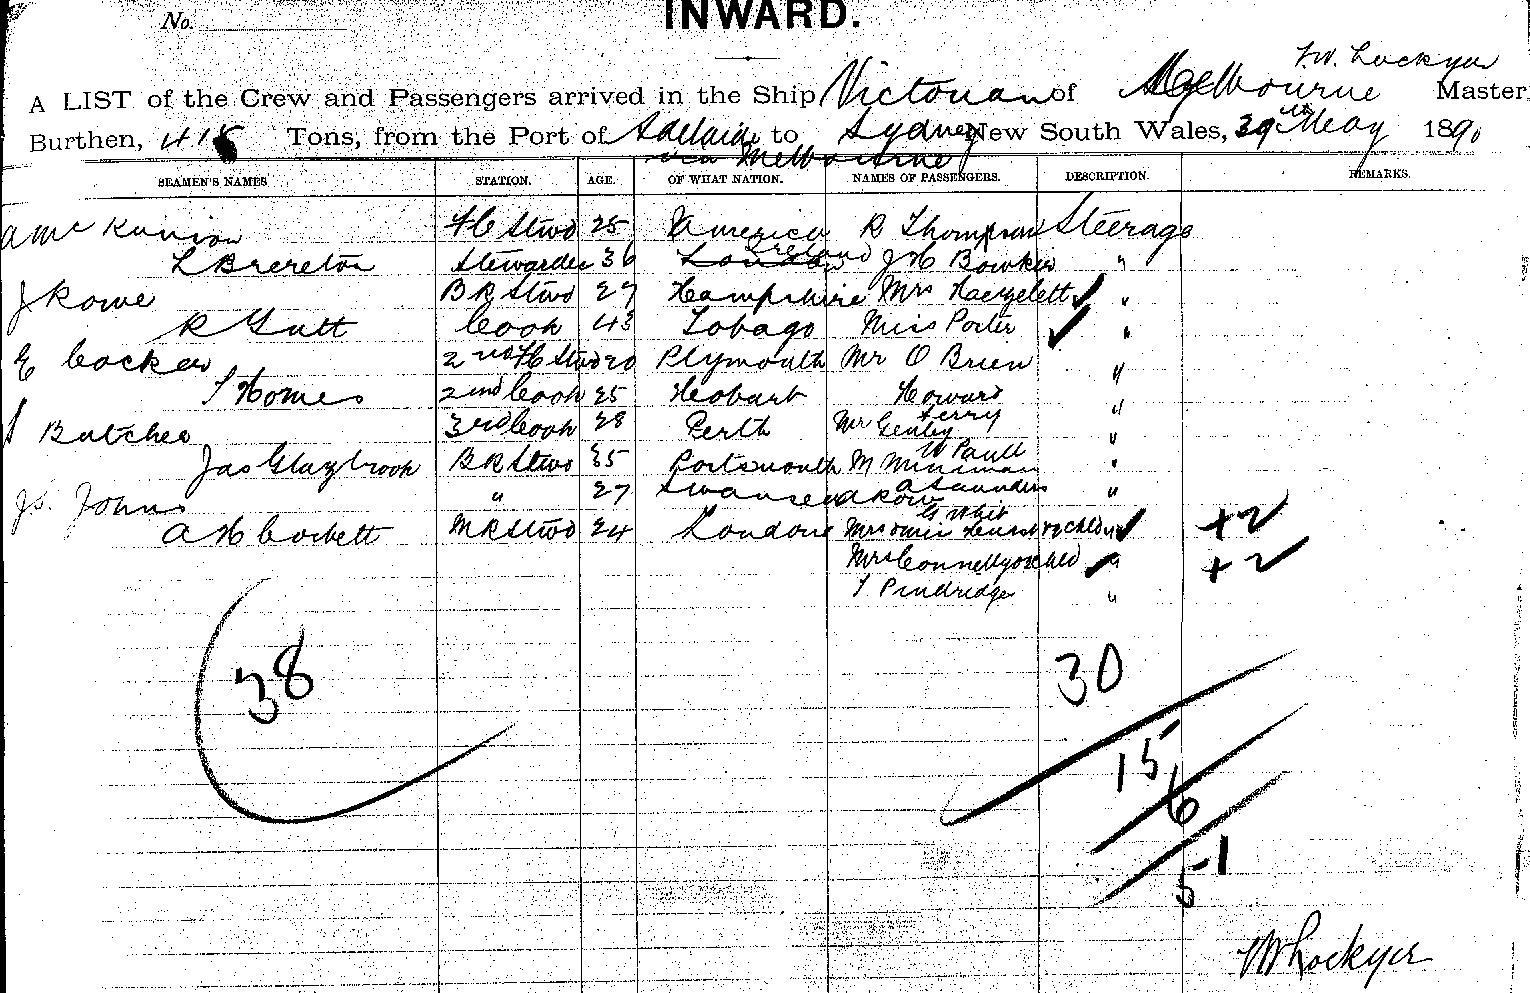 No.
INWARD.
T.W. Lockyer
A LIST of the Crew and Passengers arrived in the Ship Victorian of Melbourne Master,
Burthen, 418 Tons, from the Port of Adelaide to Sydney New South Wales, 29th May 1890
via Melbourne
SEAMEN'S NAMES STATION. AGE. OF WHAT NATION. NAMES OF PASSENGERS. DESCRIPTION. REMARKS.
A Mc Kunion FC Stwd 25 America R Thompson Steerage
Ireland
L Brereton Stewardess 36 London J H Bowker "
J Rowe BR Stwd 27 Hampshire Mrs Haezelett "
R Gutt Cook 43 Tobago Miss Porter "
E Cocker 2nd FC Stwd 20 Plymouth Mr O Brien "
T Homes 2nd Cook 25 Hobart Howard "
Terry
Butcher 3rd Cook 28 Perth Mr Gentry "
W Paull
Jas Glaybrook BR Stwd 35 Portsmouth M Miniman "
A Saunders
Js. Johns " 27 Swansea A Row "
G Whit
A H Corbett MR Stwd 24 London Mrs Miss & Child " +2
Mrs Connelly & Child " +2
T Pindridge "
38
30
15
6
51
TW Lockyer